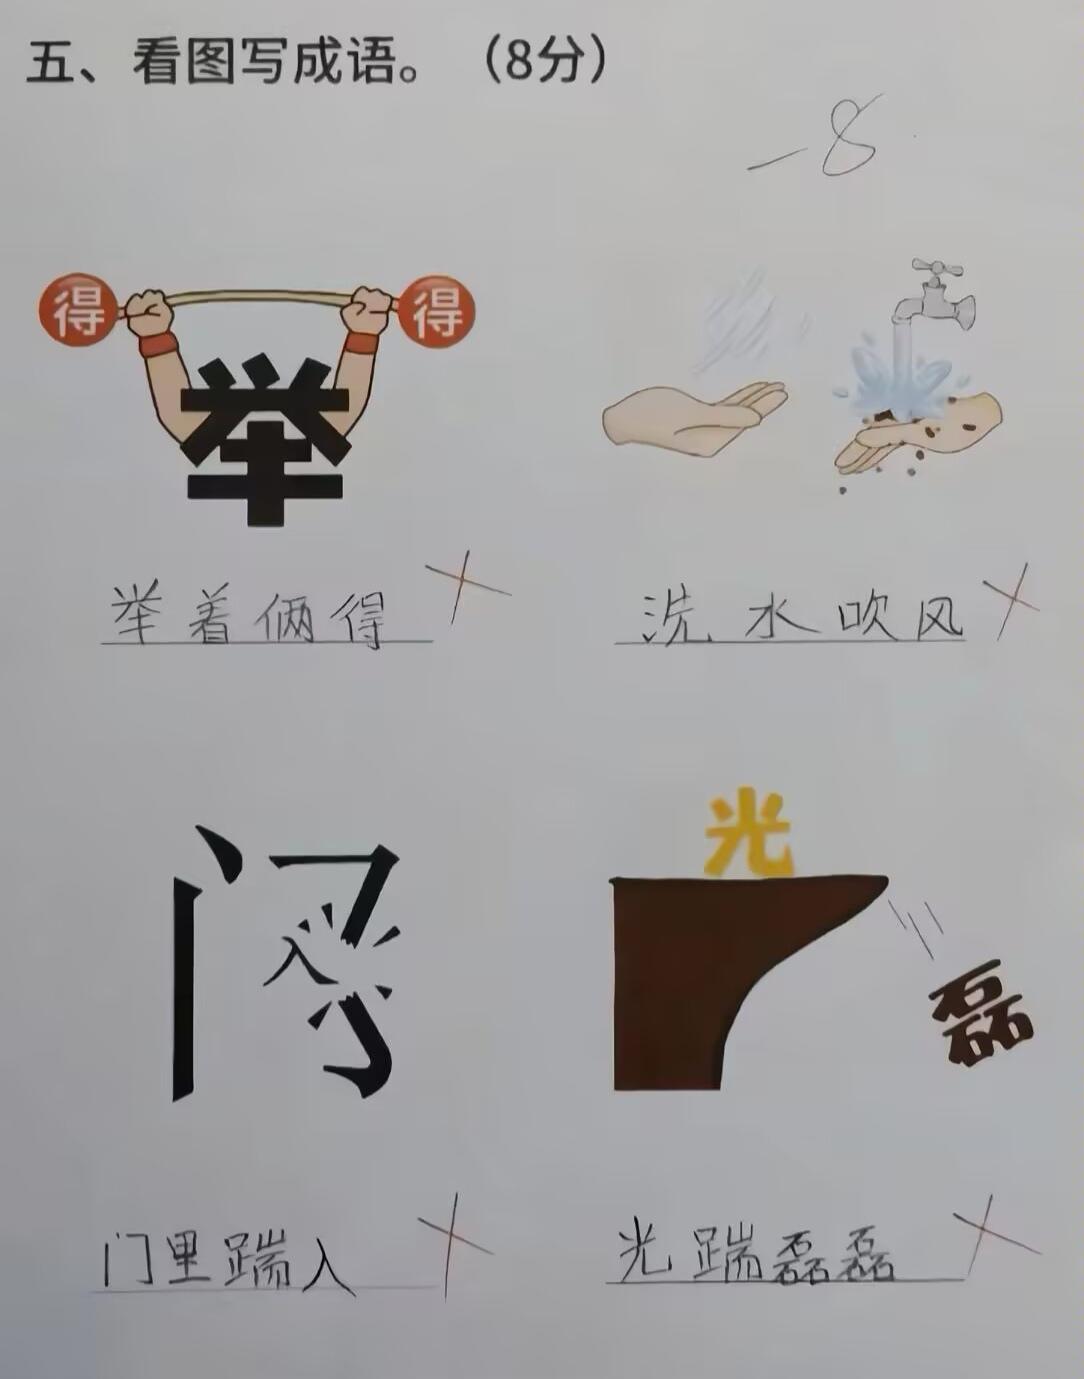 五、看图写成语。（8分）
-8
得 得
举
举着俩得
洗水吹风
门
入
光
磊
门里踹入
光踹磊磊